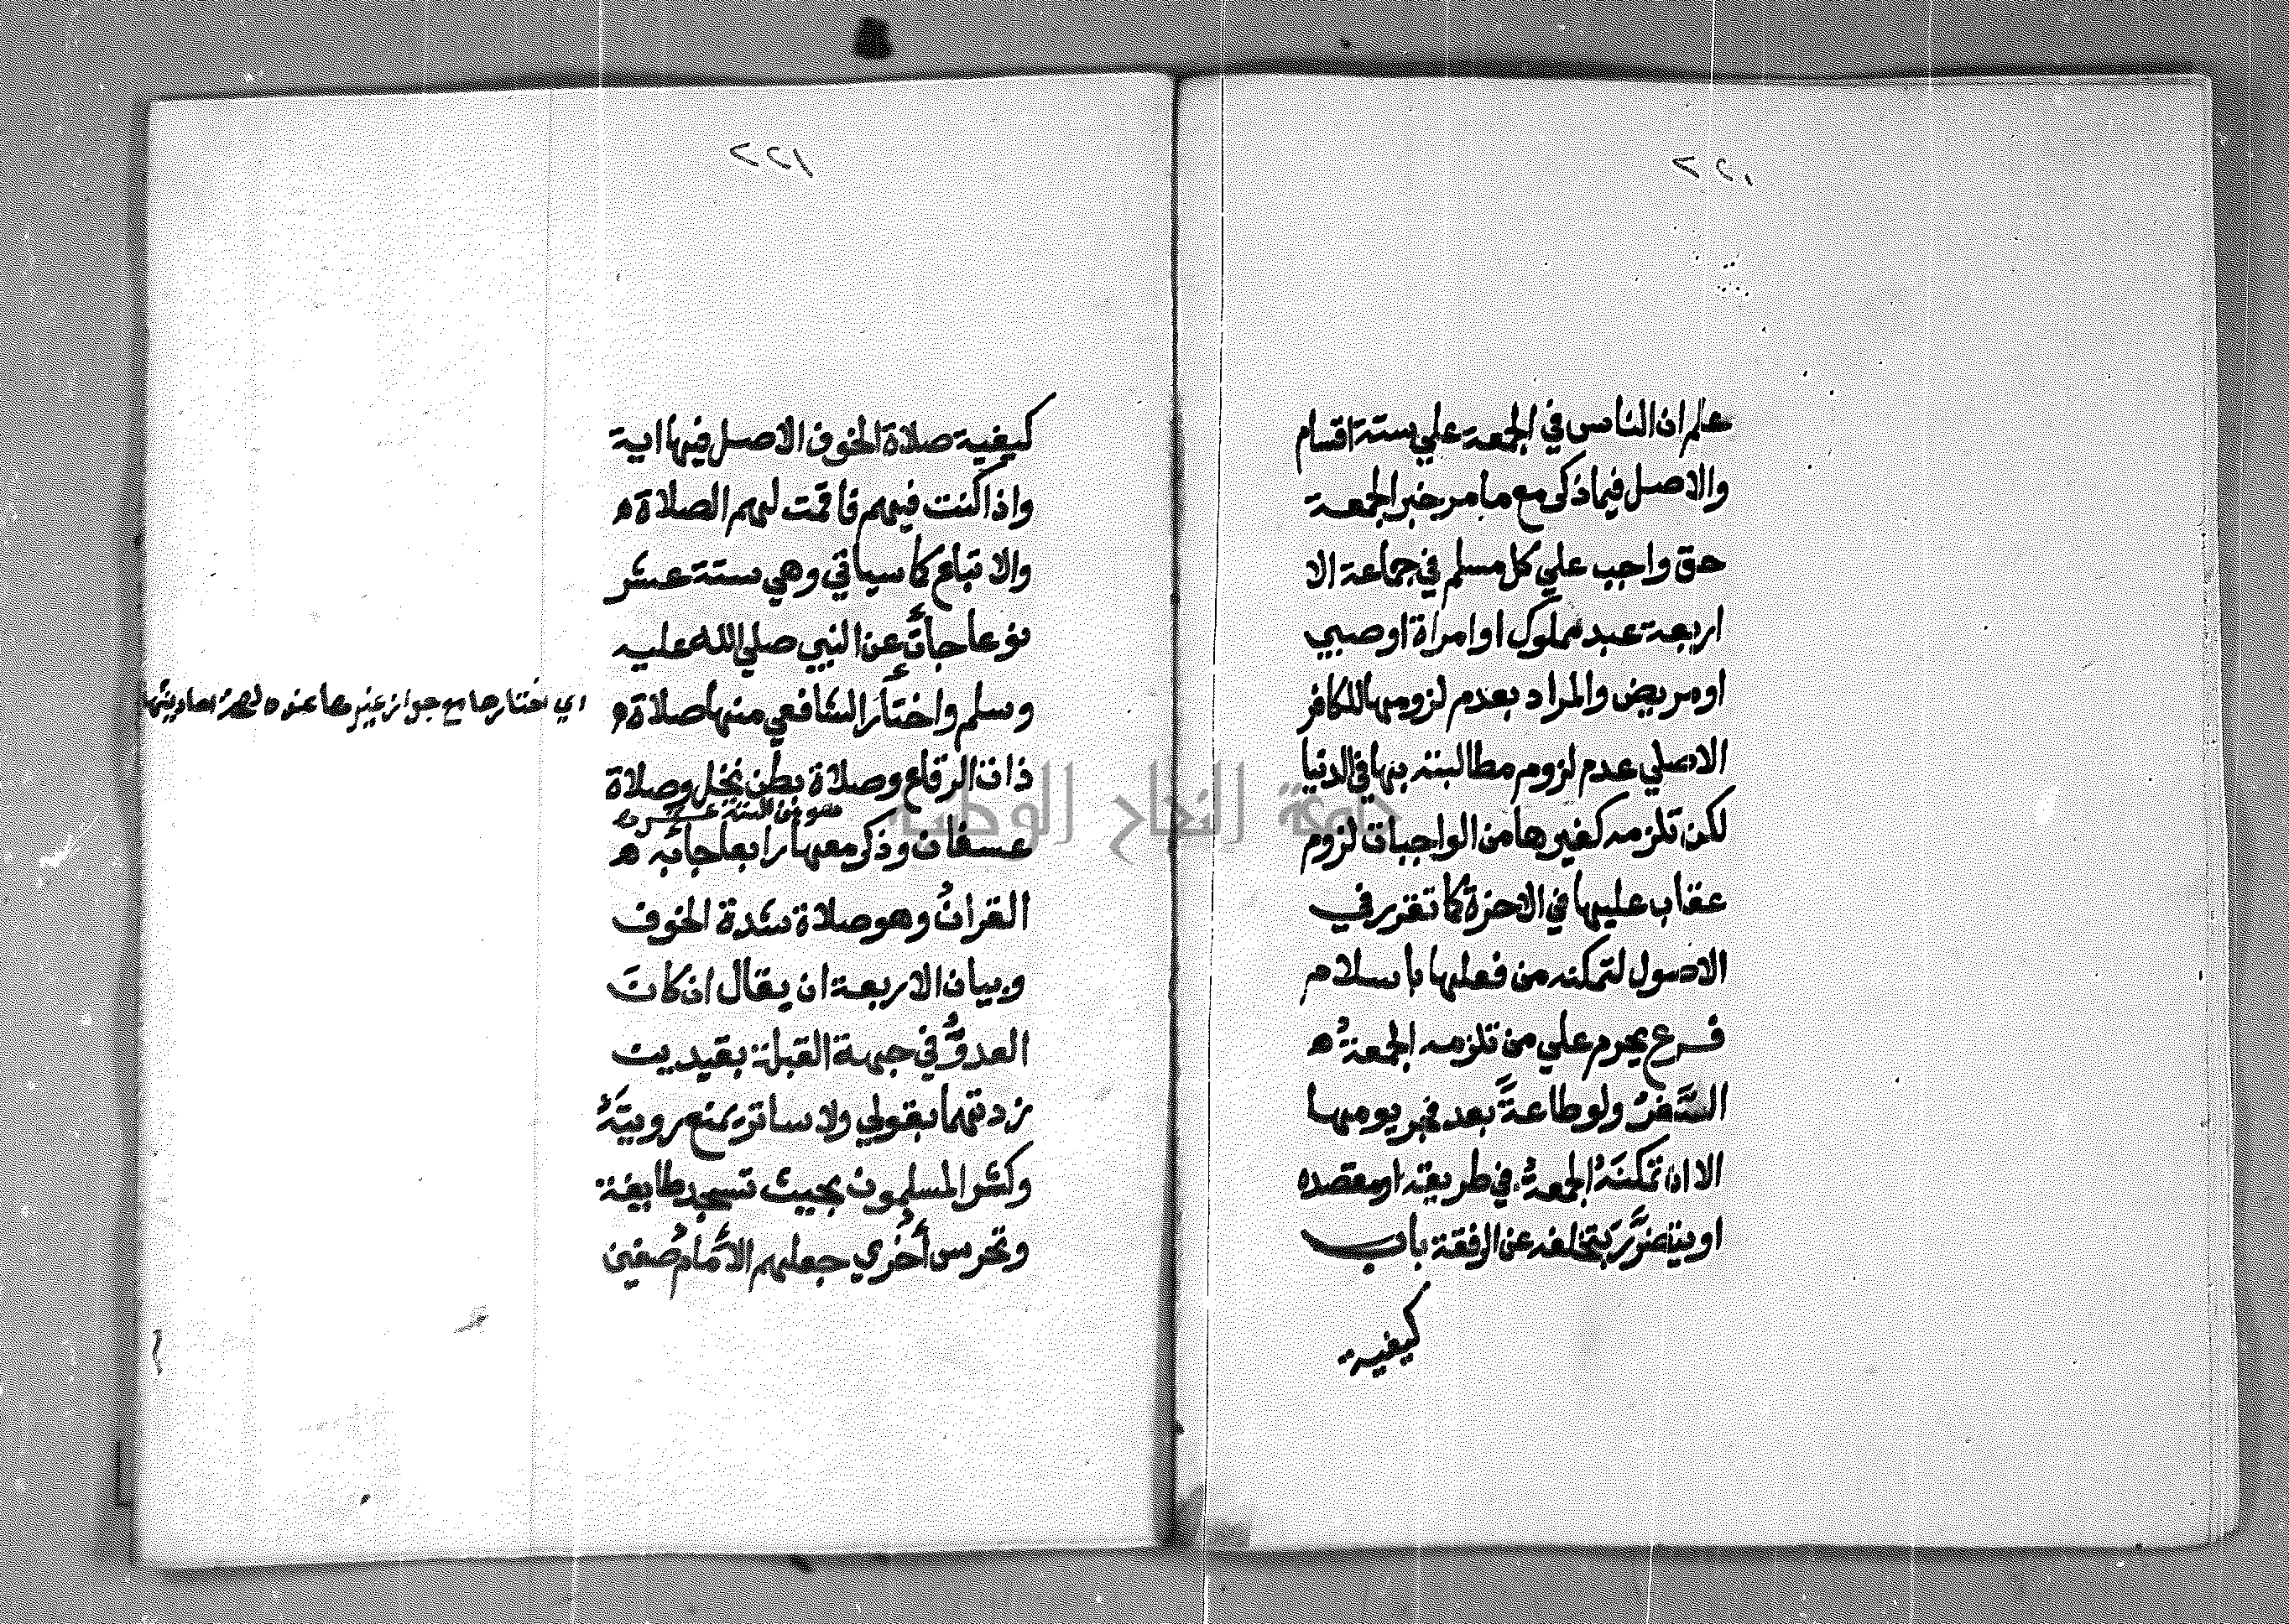 علم ان الناس في الجمعة علي ستة اقسام
والاصل فيما ذكر مع ما مر خبر الجمعة
حق واجب علي كل مسلم في جماعة الا
اربعة عبد مملوك او امراة او صبي
او مريض والمراد بعدم لزومها للكافر
الاصلي عدم لزوم مطالبته بها في الدنيا
لكن تلزمه كغيرها من الواجبات لزوم
عقاب عليها في الاخرة كما تقرر في
الاصول لتمكنه من فعلها باسلام
فرع يحرم علي من تلزمه الجمعة
السَّفرُ ولو طاعةً بعد فجر يومها
الا ان تمكنَهُ الجمعةُ في طريقه او مقصده
او يتضرَّرَ بتخلفه عن الرفقة باب
كيفية
١٢٦
كيفية صلاة الخوف الاصل فيها اية
واذا كنت فيهم فاقمت لهم الصلاة
والاتباع كما سياتي وهي ستة عشر
نوعا جاتْ عن النبي صلي الله عليه
وسلم واختارَ الشافعي منها صلاة
اي اختارها مع جواز غيرها عنده
ذات الرقاع وصلاة بطن نخل وصلاة
عسفان وذكر معها رابعا جا به
القرانُ وهو صلاة شدة الخوف
وبيان الاربعة ان يقال ان كانَ
العدوُّ في جهة القبلة بقيدين
زدتهما بقولي ولا ساتر يمنع رويتَهُ
وكثر المسلمون بحيث تسجد طايفة
وتحرس أُخري جعلهم الامامُ صفين